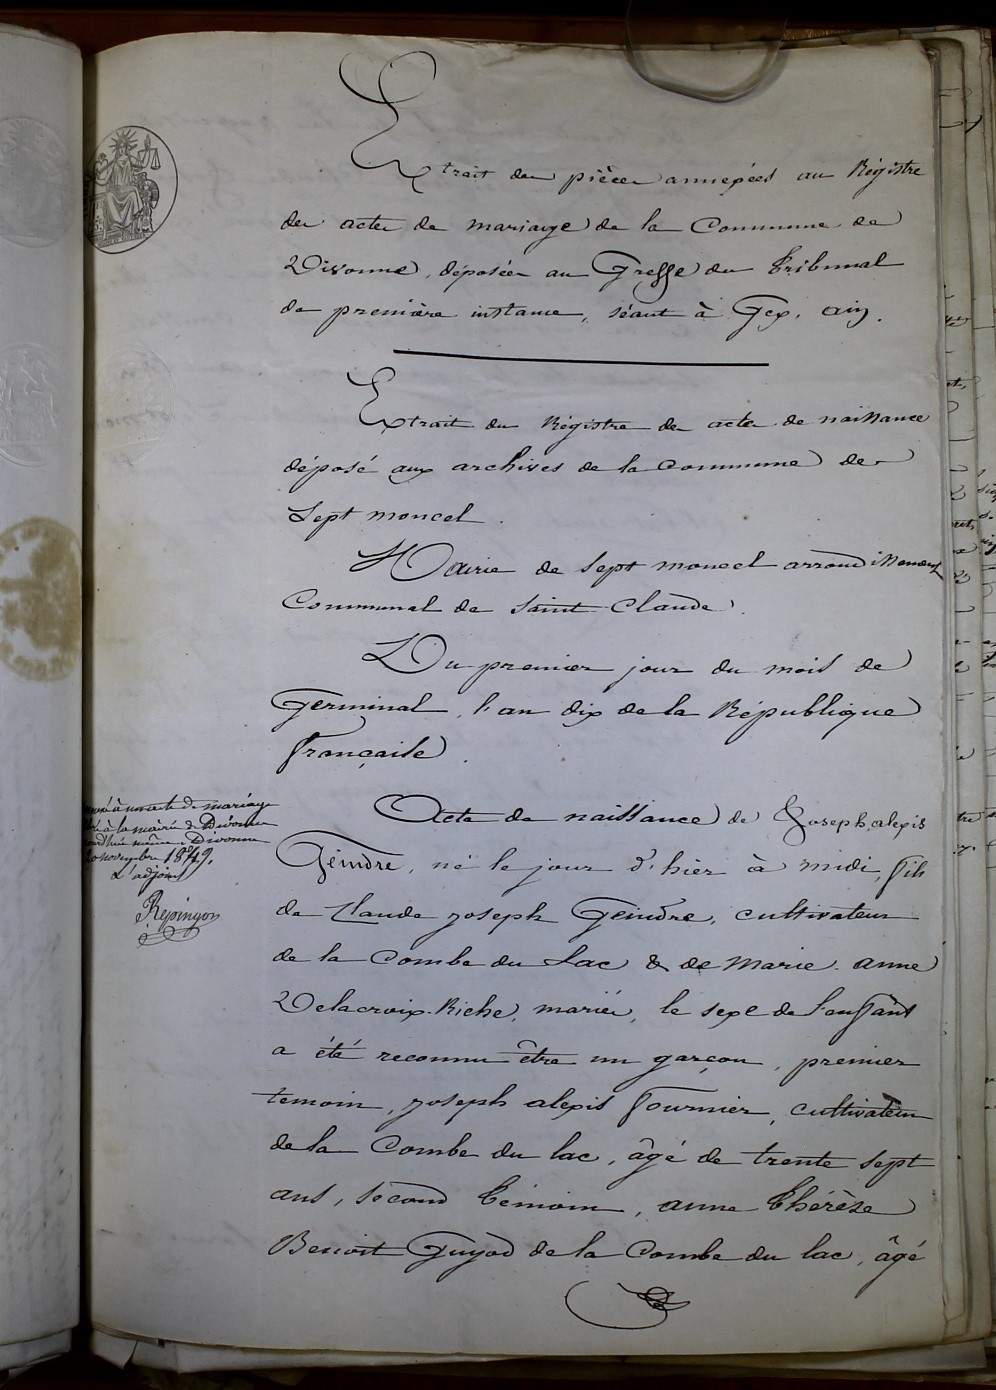 Extrait des pièces annexées au Régistre
des actes de mariage de la Commune de
Divonne, déposées au Greffe du Tribunal
de première instance, séant à Gex, ain.
Extrait du Régistre des actes de naissance
déposé aux archives de la Commune de
Sept moncel.
Mairie de Sept moncel arrondissement
Communal de Saint-Claude.
Du premier jour du mois de
Germinal, l'an dix de la République
française.
à un acte de mariage
à la mairie de Divonne
Divonne
20 novembre 1849.
L'adjoint
Repingon
Acte de naissance de Joseph alexis
Geindre, né le jour d'hier à midi, fils
de Claude Joseph Geindre, cultivateur
de la Combe du Lac & de Marie-anne
Delacroix-Riche, mariés, le sexe de l'enfant
a été reconnu être un garçon, premier
temoin, Joseph alexis fournier, cultivateur
de la Combe du lac, âgé de trente sept
ans, second témoin, anne Thérèse
Benoit Guyod de la Combe du lac, âgé